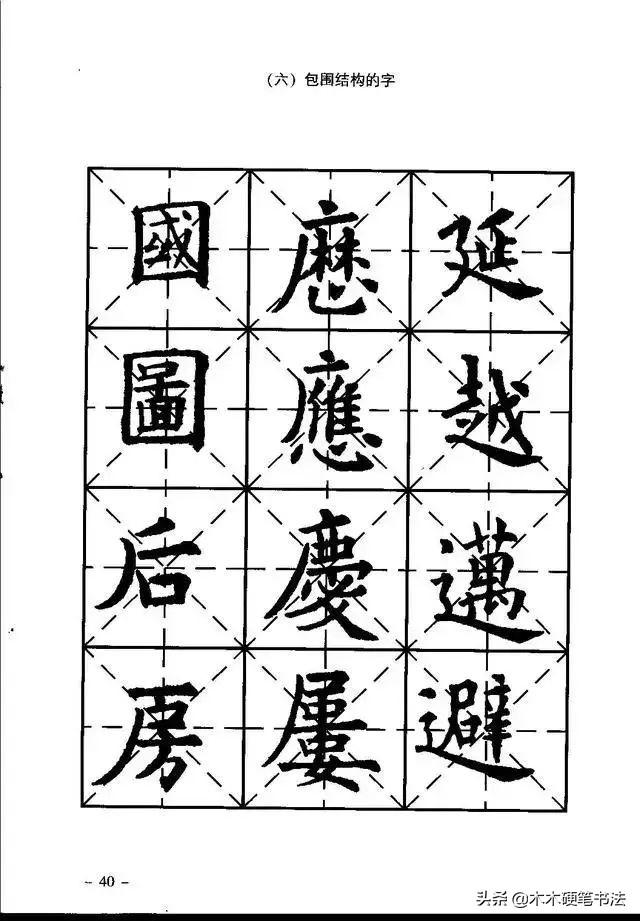 （六）包围结构的字
國 歷 延
圖 應 越
后 慶 邁
房 屢 避
- 40 -
头条 @木木硬笔书法